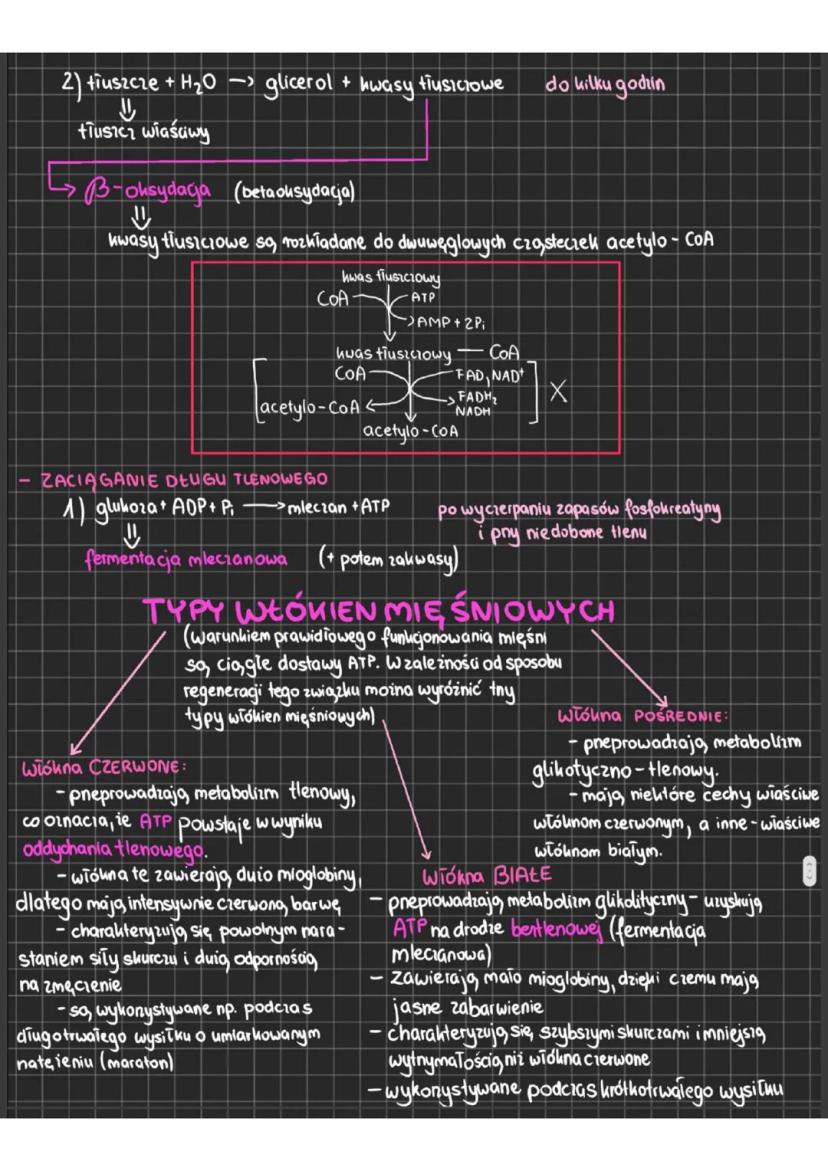 2) tłuszcze + H₂O → glicerol + kwasy tłuszczowe do kilku godzin
⇓
tłuszcz właściwy
→ β-oksydacja (betaoksydacja)
⇓
kwasy tłuszczowe są rozkładane do dwuwęglowych cząsteczek acetylo-CoA
kwas tłuszczowy
CoA ATP
AMP + 2Pi
kwas tłuszczowy — CoA
CoA FAD, NAD⁺
FADH₂
acetylo-CoA NADH
X
acetylo-CoA
- ZACIĄGANIE DŁUGU TLENOWEGO
1) glukoza + ADP + Pi → mleczan + ATP
⇓
fermentacja mleczanowa (+ potem zakwasy)
po wyczerpaniu zapasów fosfokreatyny
i przy niedoborze tlenu
TYPY WŁÓKIEN MIĘŚNIOWYCH
(warunkiem prawidłowego funkcjonowania mięśni
są ciągłe dostawy ATP. W zależności od sposobu
regeneracji tego związku można wyróżnić trzy
typy włókien mięśniowych)
Włókna CZERWONE:
- przeprowadzają metabolizm tlenowy,
co oznacza, że ATP powstaje w wyniku
oddychania tlenowego.
- włókna te zawierają dużo mioglobiny,
dlatego mają intensywnie czerwoną barwę
- charakteryzują się powolnym nara-
staniem siły skurczu i dużą odpornością
na zmęczenie
- są wykorzystywane np. podczas
długotrwałego wysiłku o umiarkowanym
natężeniu (maraton)
Włókna BIAŁE
- przeprowadzają metabolizm glikolityczny - uzyskują
ATP na drodze beztlenowej (fermentacja
mleczanowa)
- Zawierają mało mioglobiny, dzięki czemu mają
jasne zabarwienie
- charakteryzują się szybszymi skurczami i mniejszą
wytrzymałością niż włókna czerwone
- wykorzystywane podczas krótkotrwałego wysiłku
Włókna POŚREDNIE:
- przeprowadzają metabolizm
glikotyczno-tlenowy.
- mają niektóre cechy właściwe
włóknom czerwonym, a inne - właściwe
włóknom białym.